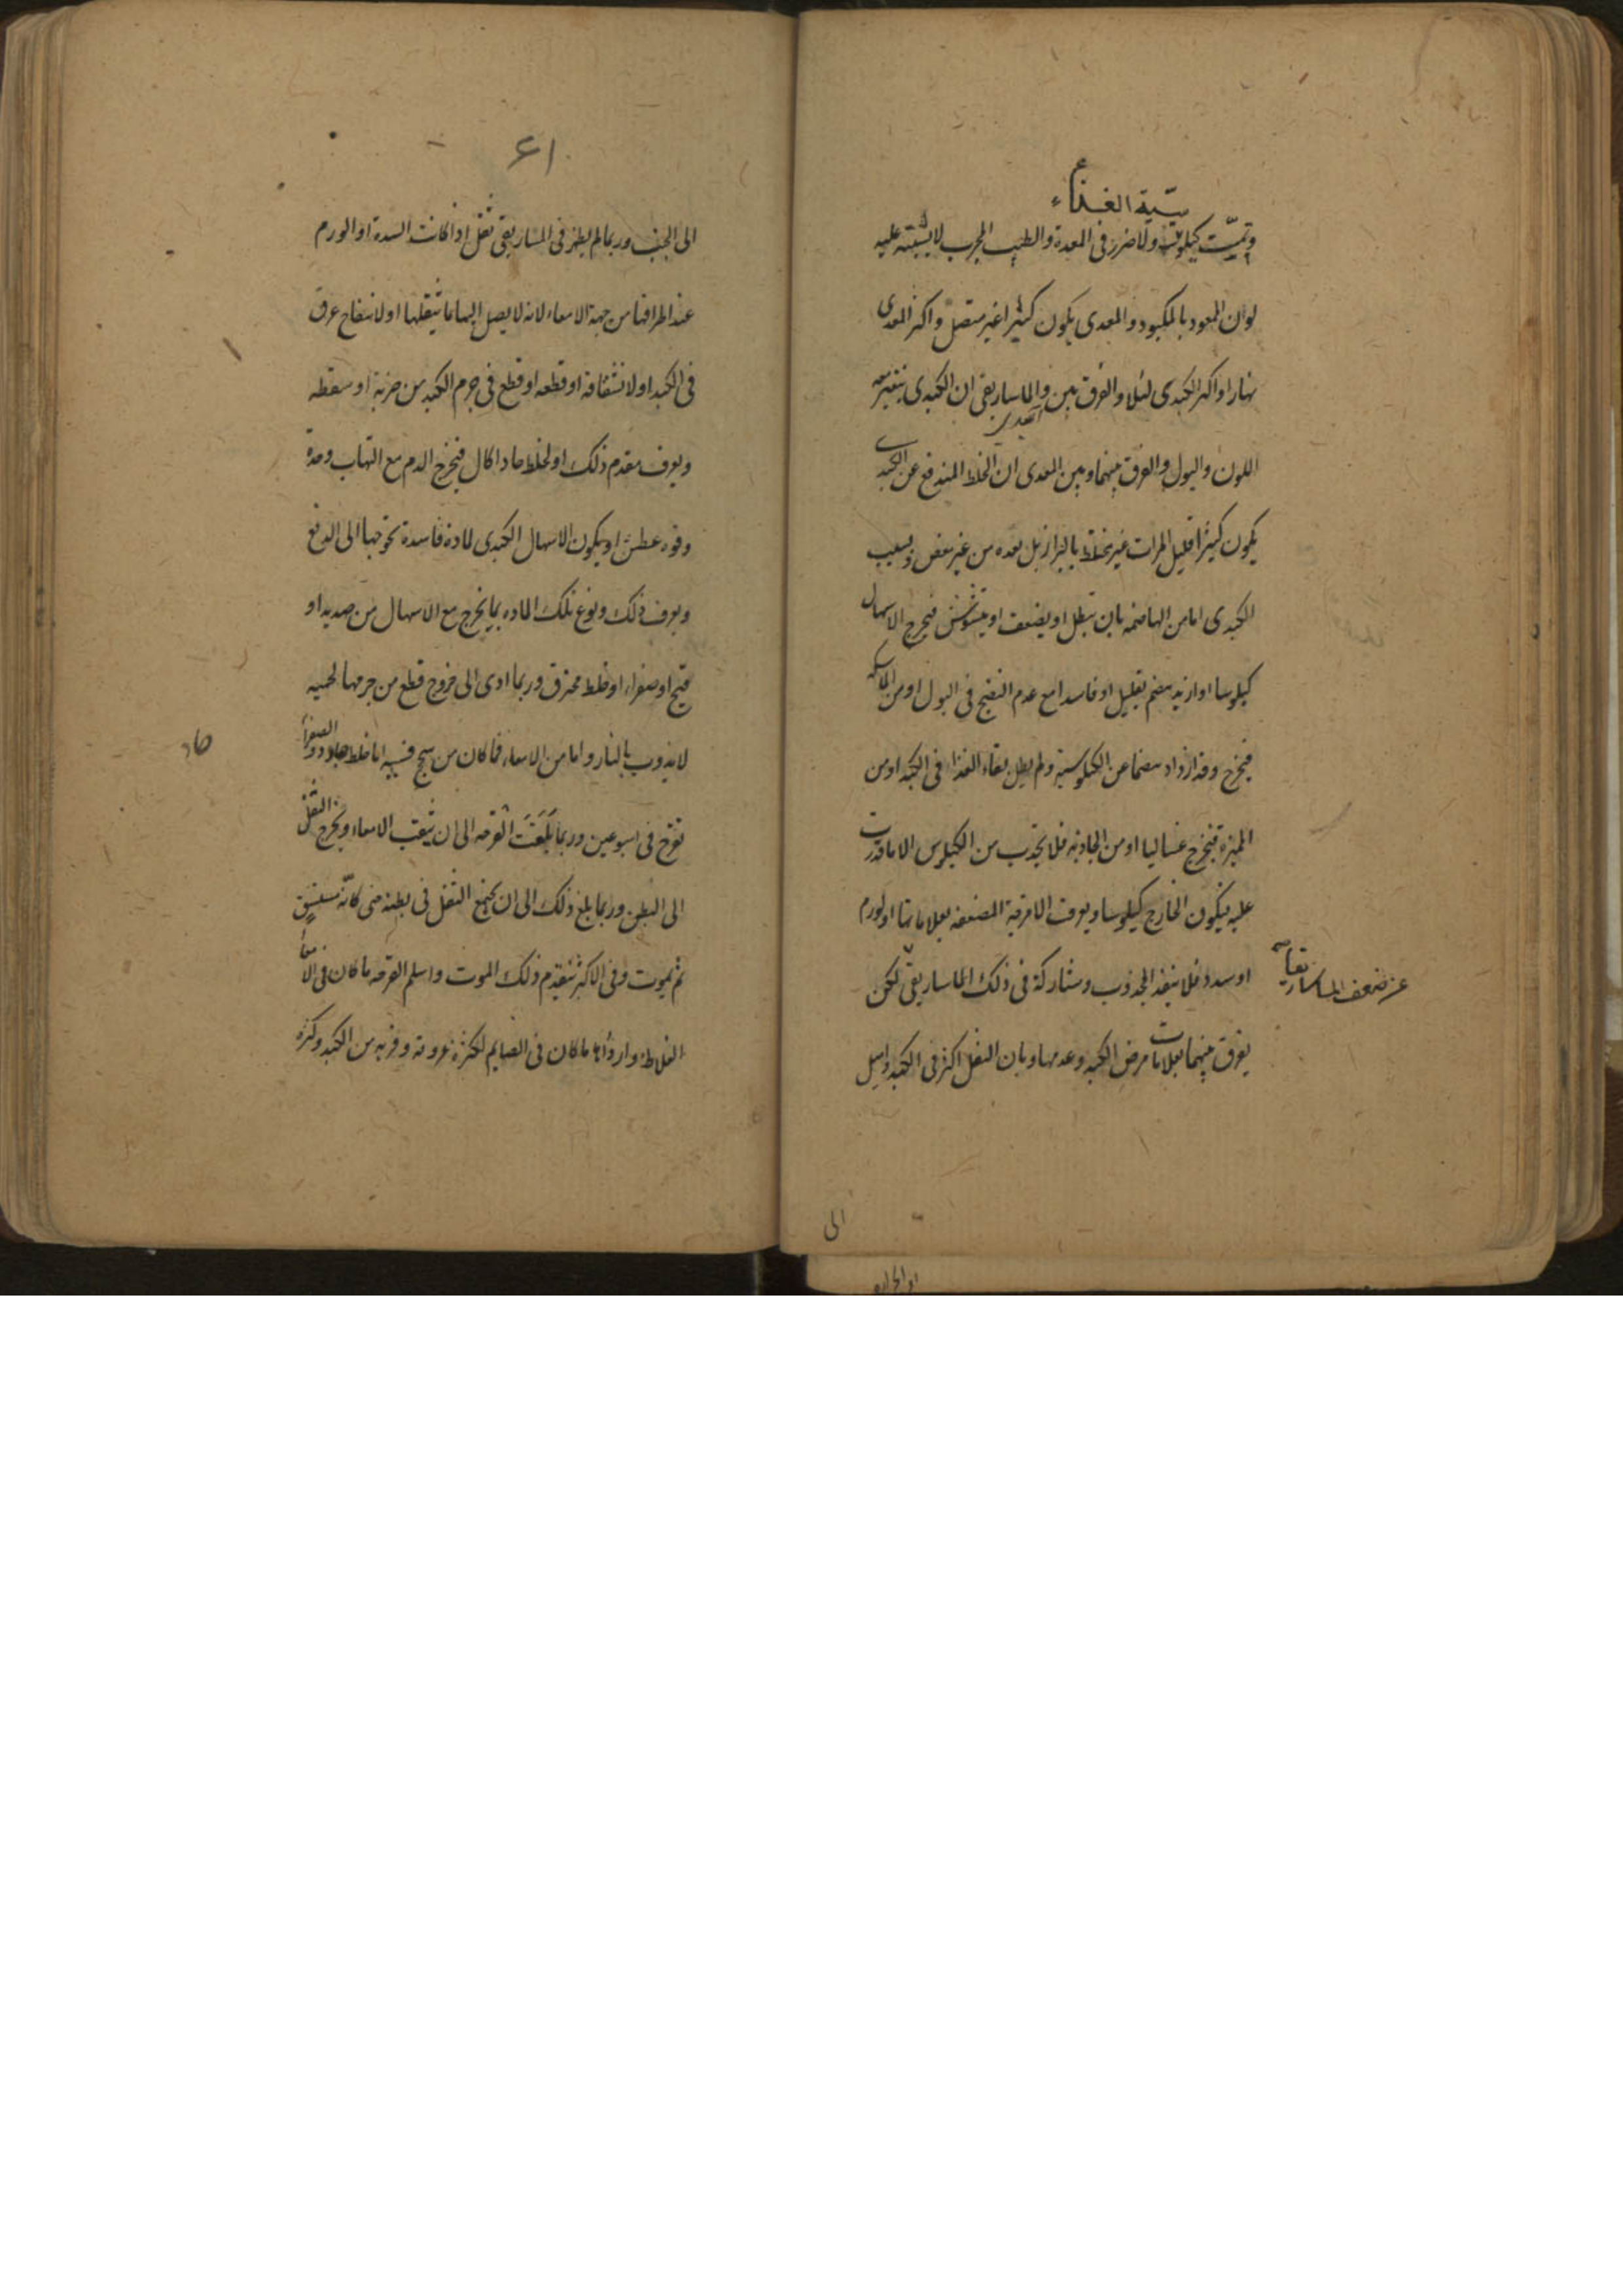 سية الغذاء
وتمت كيلوسية ولا ضرر فى المعدة والطبيب المجرب لا يشتبه عليه
لون المعود بالمكبود والمعدى يكون كثيرا غير متصل واكثر المعدى
نهارا واكثر الكبدى ليلا والفرق بين والماساريقى ان الكبدى يتغير معه
الكبدى
اللون والبول والفرق بينهما وبين المعدى ان الخلط المندفع عن الكبد
يكون كثيرا قليل المرات غير مختلط بالبراز بل بعده من غير مغص وبسبب
الكبدى اما من الهاضمة بان تبطل او يضعف او يتشوش فيخرج الاسهال
كيلوسا او ازيد هضم بقليل او فاسدا مع عدم النضج فى البول او من الماسكة
فيخرج وقد ازداد هضما عن الكيلوسية ولم يطل بقاء الغذاء فى الكبد او من
المميزة فيخرج غساليا او من الجاذبة فلا يجذب من الكيلوس الا ما قدرت
عليه فيكون الخارج كيلوسا ويعرف الامزجة المضعفة بعلاماتها او لورم
او سدد فلا ينفذ المجذوب ومشاركة فى ذلك الماساريقى لكن
عن ضعف الماساريقا
يفرق بينهما بعلامات مرض الكبد وعدمها وبان الثقل اكثر فى الكبد واميل
الى
٦١
الى الجنب وربما لم يظهر فى الماساريقى ثقل اذا كانت السدة او الورم
عند اطرافها من جهة الامعاء لانه لا يصل اليها ما يثقلها او لانفتاح عرق
فى الكبد او لانشقاقه او قطعه او قطع فى جرم الكبد من ضربة او سقطه
ويعرف بتقدم ذلك او لخلط حاد اكال فيخرج الدم مع التهاب وحدة
وقوة عطش او يكون الاسهال الكبدى لمادة فاسدة تحوجها الى الدفع
ويعرف ذلك ونوع تلك المادة بما يخرج مع الاسهال من صديد او
قيح او صفراء او خلط محترق وربما ادى الى خروج قطع من جرمها لحمية
لا يذوب بالنار واما من الامعاء فما كان من سحج فسببه اما خلط حاد والصفرا
حاد
تقرح فى اسبوعين وربما بلغت القرحة الى ان يثقب الامعاء ويخرج الثفل
الى البطن وربما بلغ ذلك الى ان يجتمع الثفل فى بطنه حتى كانه مستسق
ثم يموت وفى الاكثر يتقدم ذلك الموت واسلم القرحة ما كان فى الامعاء
الغلاظ وارداها ما كان فى الصايم لكثرة عروقه وقربه من الكبد وكثرة